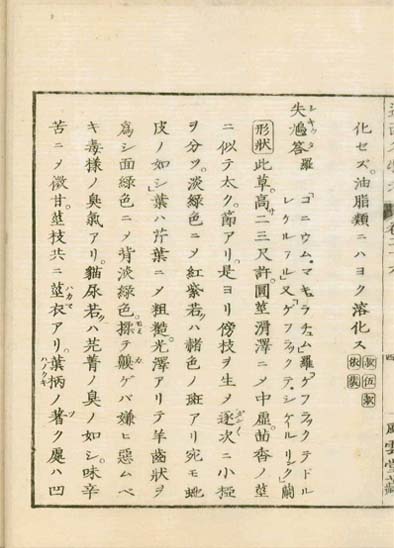 化セズ。油脂類ニハヨク溶化ス
失鳩答 羅「コニウム、マキュラチュム」羅「ゲフラックテドル
レケルフル」又「ゲフラックテ、シケールリンク」蘭
形狀 此草。高二三尺許。圓莖滑澤ニメ中虛。茴香ノ莖
ニ似テ太ク。節アリ。是ヨリ傍枝ヲ生メ逐次ニ小極
ヲ分ツ。淡緑色ニメ紅紫若クハ赭色ノ斑アリ宛モ蛇
皮ノ如シ」葉ハ芹葉ニメ粗糙。光澤アリテ羊齒狀ヲ
爲シ面緑色ニメ背淡緑色。揉テ齅ゲバ嫌ヒ惡ムベ
キ毒樣ノ臭氣アリ。貓尿若クハ芫菁ノ臭ノ如シ。味辛
苦ニメ微甘。莖枝共ニ莖衣アリ。葉柄ノ著ク處ハ凹
四
風雲堂藏